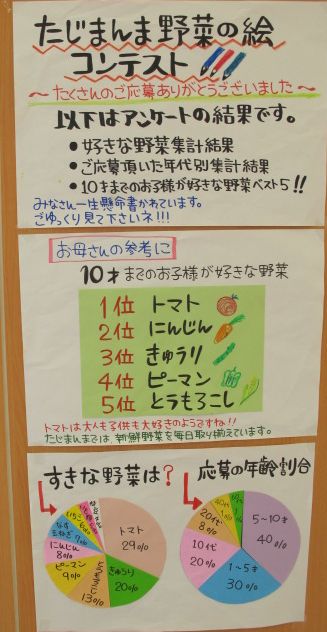 たじまんま野菜の絵
コンテスト!!!
〜たくさんのご応募ありがとうございました〜
以下はアンケートの結果です。
•好きな野菜集計結果
•ご応募頂いた年代別集計結果
•10才までのお子様が好きな野菜ベスト5!!
みなさん一生懸命書かれています。
ごゆっくり見て下さいネ!!!
お母さんの参考に
10才までのお子様が好きな野菜
1位 トマト
2位 にんじん
3位 きゅうり
4位 ピーマン
5位 とうもろこし
トマトは大人も子供も大好きのようですネ!!
たじまんまでは、新鮮野菜を毎日取り揃えています。
応募の年齢割合
5~10才
40%
1~5才
30%
10代
20%
20代
8%
すきな野菜は?
トマト
29%
きゅうり
20%
13%
ピーマン
9%
にんじん
8%